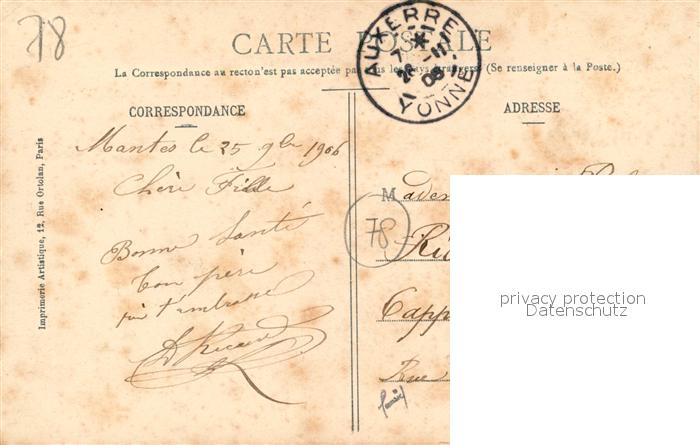 78
CARTE POSTALE
AUXERRE
YONNE
La Correspondance au recto n'est pas acceptée par tous les pays étrangers (Se renseigner à la Poste.)
CORRESPONDANCE
ADRESSE
Mantes le 25 9bre 1906
Chère Fille
Bonne Santé
Ton père
qui t'embrasse
Imprimerie Artistique, 12, Rue Ortolan, Paris
M
78
Capp
Rue
privacy protection
Datenschutz